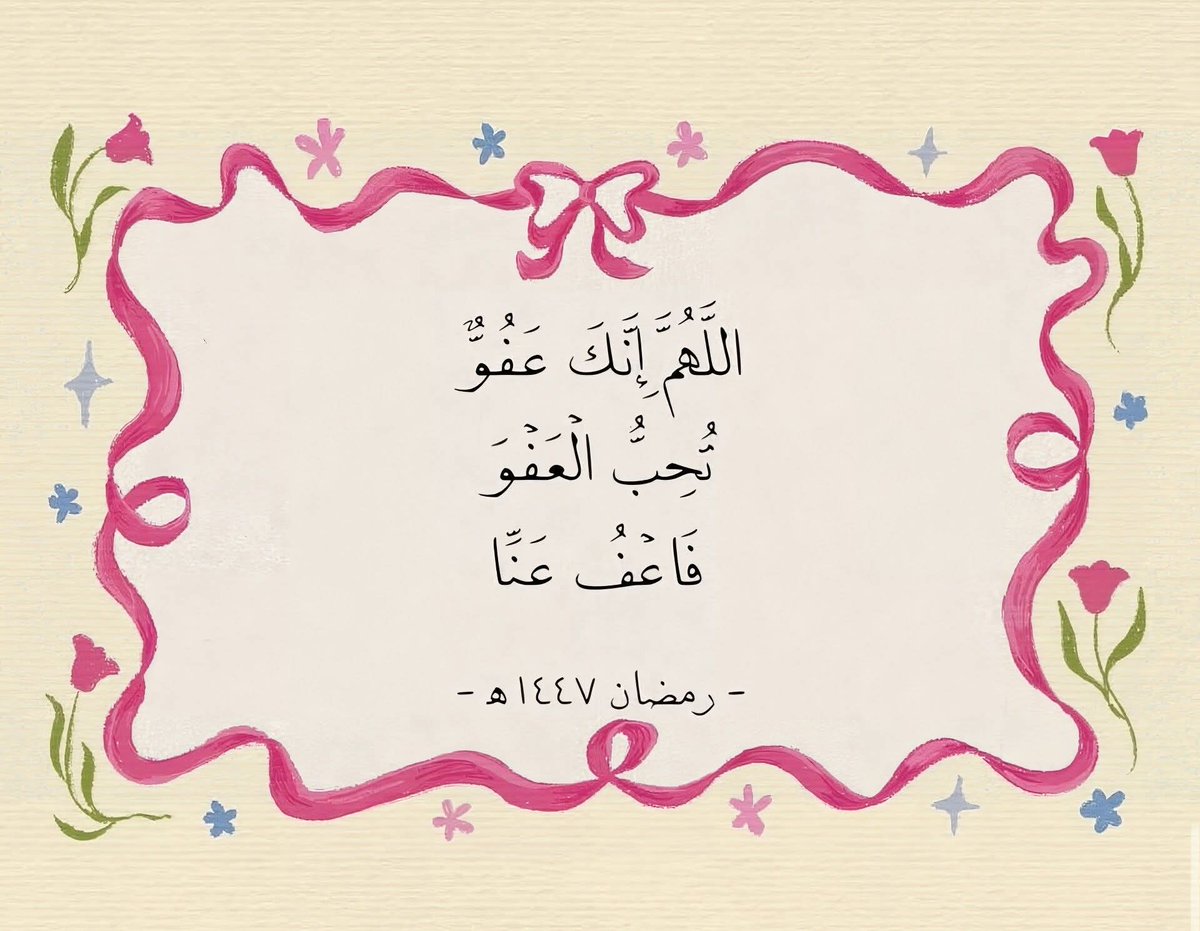 اللَّهُمَّ إِنَّكَ عَفُوٌّ
تُحِبُّ الْعَفْوَ
فَاعْفُ عَنَّا
- رمضان ١٤٤٧ هـ -